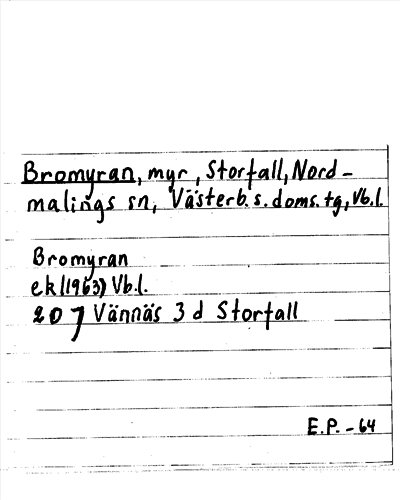 Bromyran, myr, Storfall, Nord-
malings sn, Västerb. s. doms. tg, Vb. l.
Bromyran
ek (1963) Vb. l.
207 Vännäs 3 d Storfall
E.P. - 64